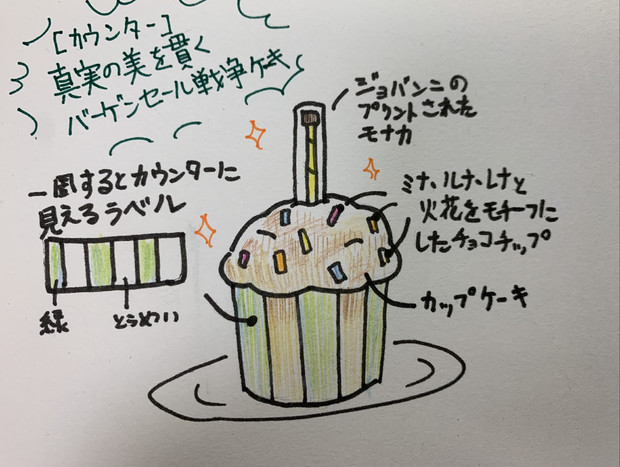 [カウンター]
真実の美を貫く
バーゲンセール戦争ケーキ
ジョバンニの
プリントされた
モナカ
一周するとカウンターに
見えるラベル
ミナ、ルナ、レナと
火花をモチーフに
したチョコチップ
カップケーキ
緑
とうめい